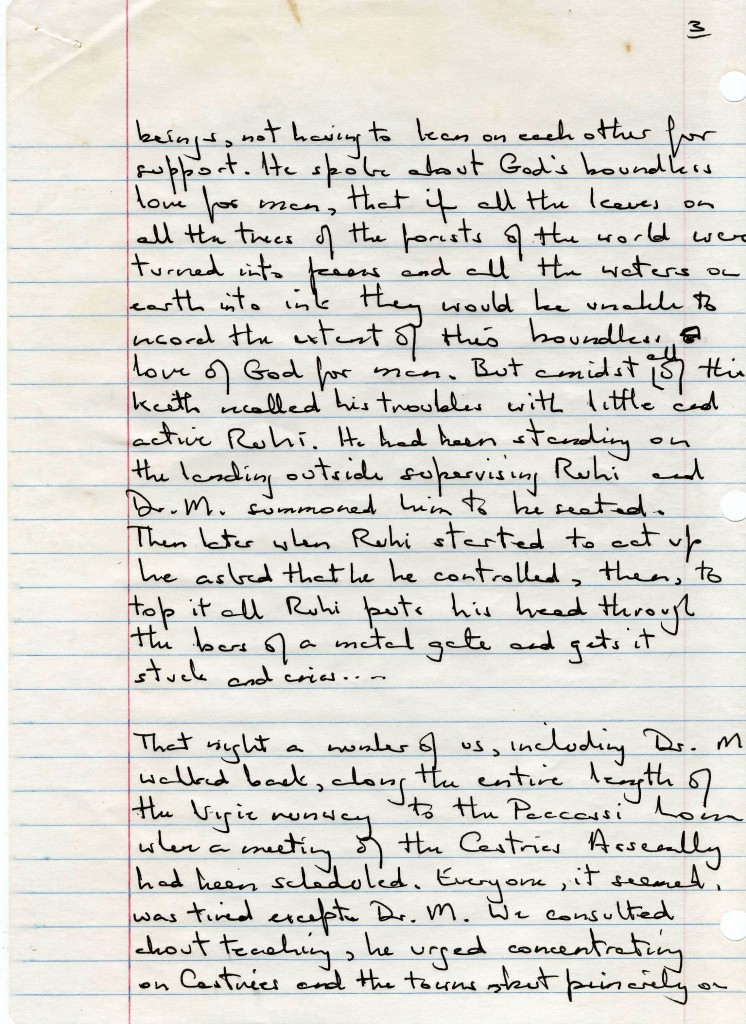 3
beings, not having to lean on each other for
support. He spoke about God's boundless
love for man, that if all the leaves on
all the trees of the forists of the world were
turned into peens and all the waters on
earth into ink they would be unable to
record the extent of this boundless
love of God for man. But amidst all of this
Keith recalled his troubles with little and
active Ruhi. He had been standing on
the landing outside supervising Ruhi and
Dr. M. summoned him to be seated.
Then later when Ruhi started to act up
he asked that he be controlled, then, to
top it all Ruhi puts his head through
the bars of a metal gate and gets it
stuck and cries....
That night a number of us, including Dr. M
walked back, along the entire length of
the Vigie runway to the home
when a meeting of the Castries Assembly
had been scheduled. Everyone, it seemed,
was tired excepte Dr. M. We consulted
about teaching, he urged concentrating
on Castries and the towns, but primarily on